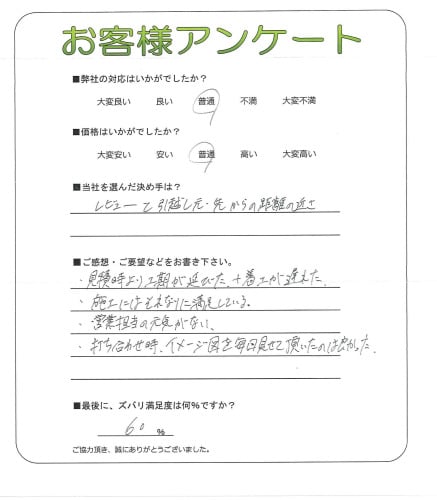 お客様アンケート
■弊社の対応はいかがでしたか？
大変良い 良い 普通 不満 大変不満
■価格はいかがでしたか？
大変安い 安い 普通 高い 大変高い
■当社を選んだ決め手は？
レビューと引越し元・先からの距離の近さ
■ご感想・ご要望などをお書き下さい。
・見積時より工期が延びた＋着工が遅れた。
・施工にはそれなりに満足している。
・営業担当の元気がない。
・打ち合わせ時、イメージ図を毎回見せて頂いたのは良かった。
■最後に、ズバリ満足度は何%ですか？
60 %
ご協力頂き、誠にありがとうございました。